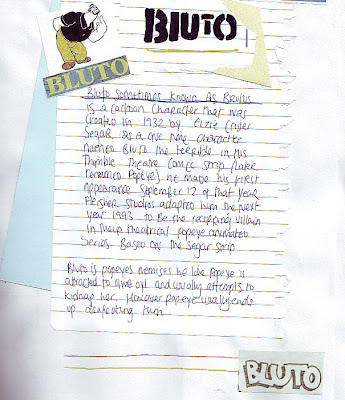 BLUTO
BLUTO
Bluto sometimes known as Brutus
is a cartoon character that was
created in 1932 by Elzie Crisler
Segar as a one time character
named Bluto the terrible in his
Thimble Theatre comic strip (later
renamed Popeye) he made his first
appearance September 12 of that year
Fleisher Studios adapted him the next
year 1993 to be the recurring villain
in their theatrical popeye animated
series Based on the Segar strip
Bluto is popeyes nemises he like Popeye is
attracted to olive oyl and usually attempts to
kidnap her. However popeye usually ends
up defeating him
BLUTO